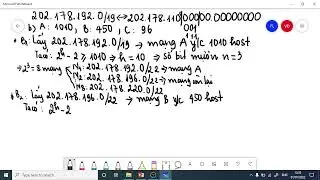 202.178.192.0/19 ↔ 202.178.110|00000.00000000
b) A: 1010, B: 450, C: 96
001
111
* B1: Lấy 202.178.192.0/19 → mạng A y/c 1010 host
Ta có: 2^h - 2 ≥ 1010 → h = 10 → số bit mượn n = 3
→ 2^3 = 8 mạng
N1: 202.178.192.0/22 → mạng A
N2: 202.178.196.0/22 → mạng còn lại
N8: 202.178.220.0/22
* B2: Lấy 202.178.196.0/22 → mạng B y/c 450 host
Ta có: 2^h - 2